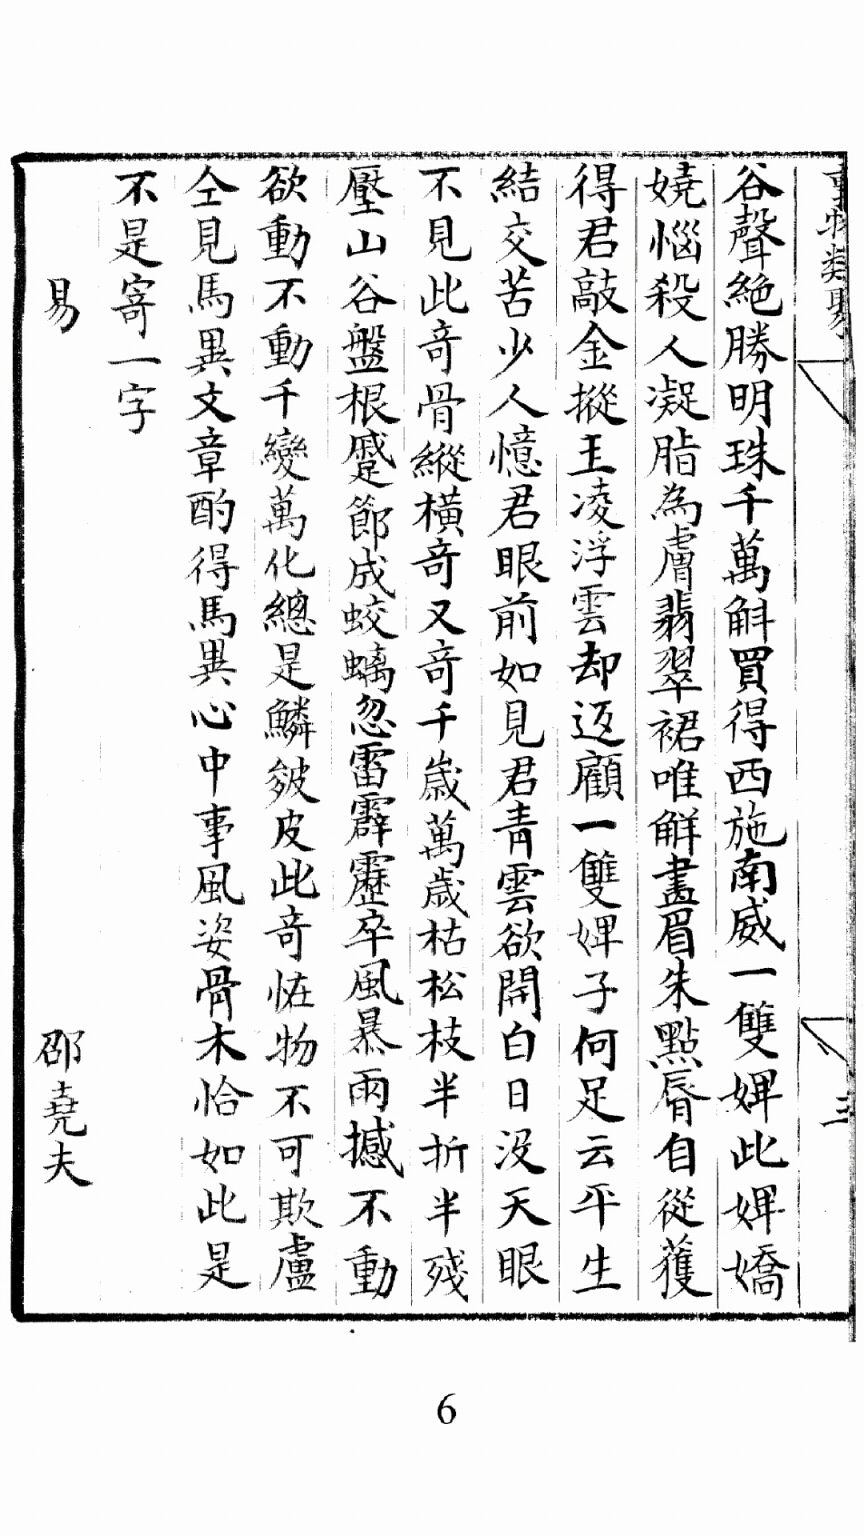 事物類聚
三
谷聲絶勝明珠千萬斛買得西施南威一雙婢此婢嬌
嬈惱殺人凝脂為膚翡翠裙唯解畫眉朱點脣自從獲
得君敲金摐王凌浮雲却返顧一雙婢子何足云平生
結交苦少人憶君眼前如見君青雲欲開白日没天眼
不見此奇骨縱横奇又奇千歲萬歲枯松枝半折半殘
壓山谷盤根蹙節成蛟螭忽雷霹靂卒風暴雨撼不動
欲動不動千變萬化總是鱗皴皮此奇恠物不可欺盧
仝見馬異文章酌得馬異心中事風姿骨木恰如此是
不是寄一字
易 邵堯夫
6